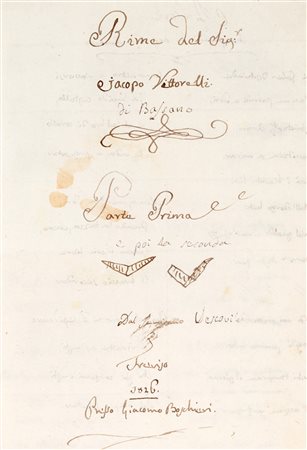 Rime del Sig.r
Jacopo Vittorelli.
di Bassano
Parte Prima
e poi la seconda
Dal Vescovi
Treviso
1826.
Presso Giacomo